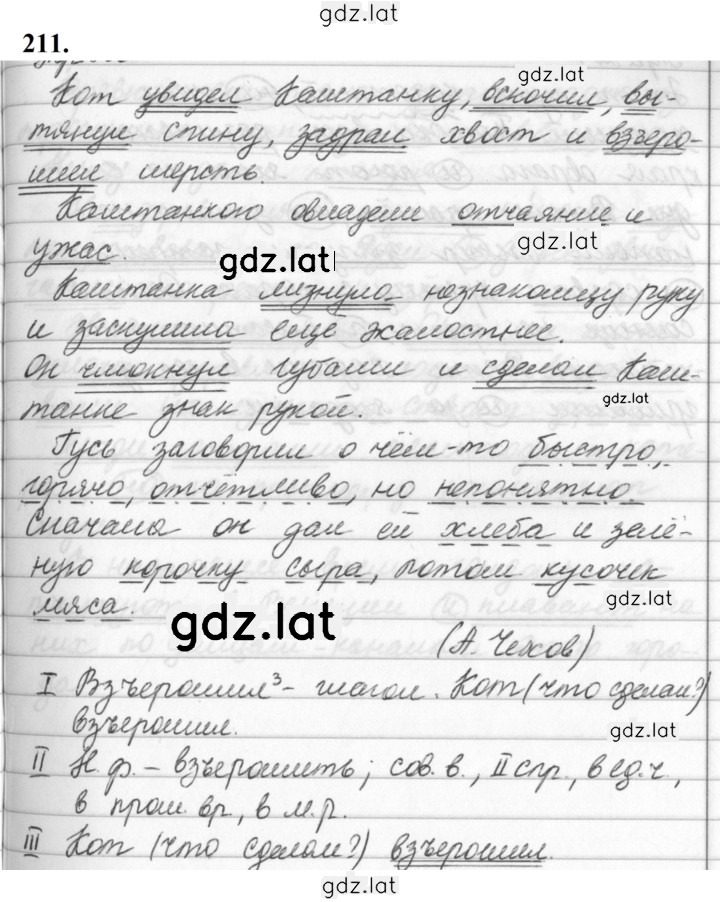 gdz.lat
211.
gdz.lat
Кот увидел Каштанку, вскочил, вы-
тянул спину, задрал хвост и взъеро-
шил шерсть.
Каштанкою овладели отчаяние и
gdz.lat
ужас.
gdz.lat
Каштанка лизнула незнакомцу руку
и заскулила ещё жалостнее.
Он чмокнул губами и сделал Каш-
gdz.lat
танке знак рукой.
Гусь заговорил о чём-то быстро,
горячо, отчётливо, но непонятно.
Сначала он дал ей хлеба и зелё-
ную корочку сыра, потом кусочек
мяса.
gdz.lat
gdz.lat
(А. Чехов)
I Взъерошил³ - глагол. Кот (что сделал?)
взъерошил.
gdz.lat
II Н.ф. - взъерошить; сов.в., II спр., в ед.ч.,
в прош. вр., в м.р.
gdz.lat
III Кот (что сделал?) взъерошил.
gdz.lat